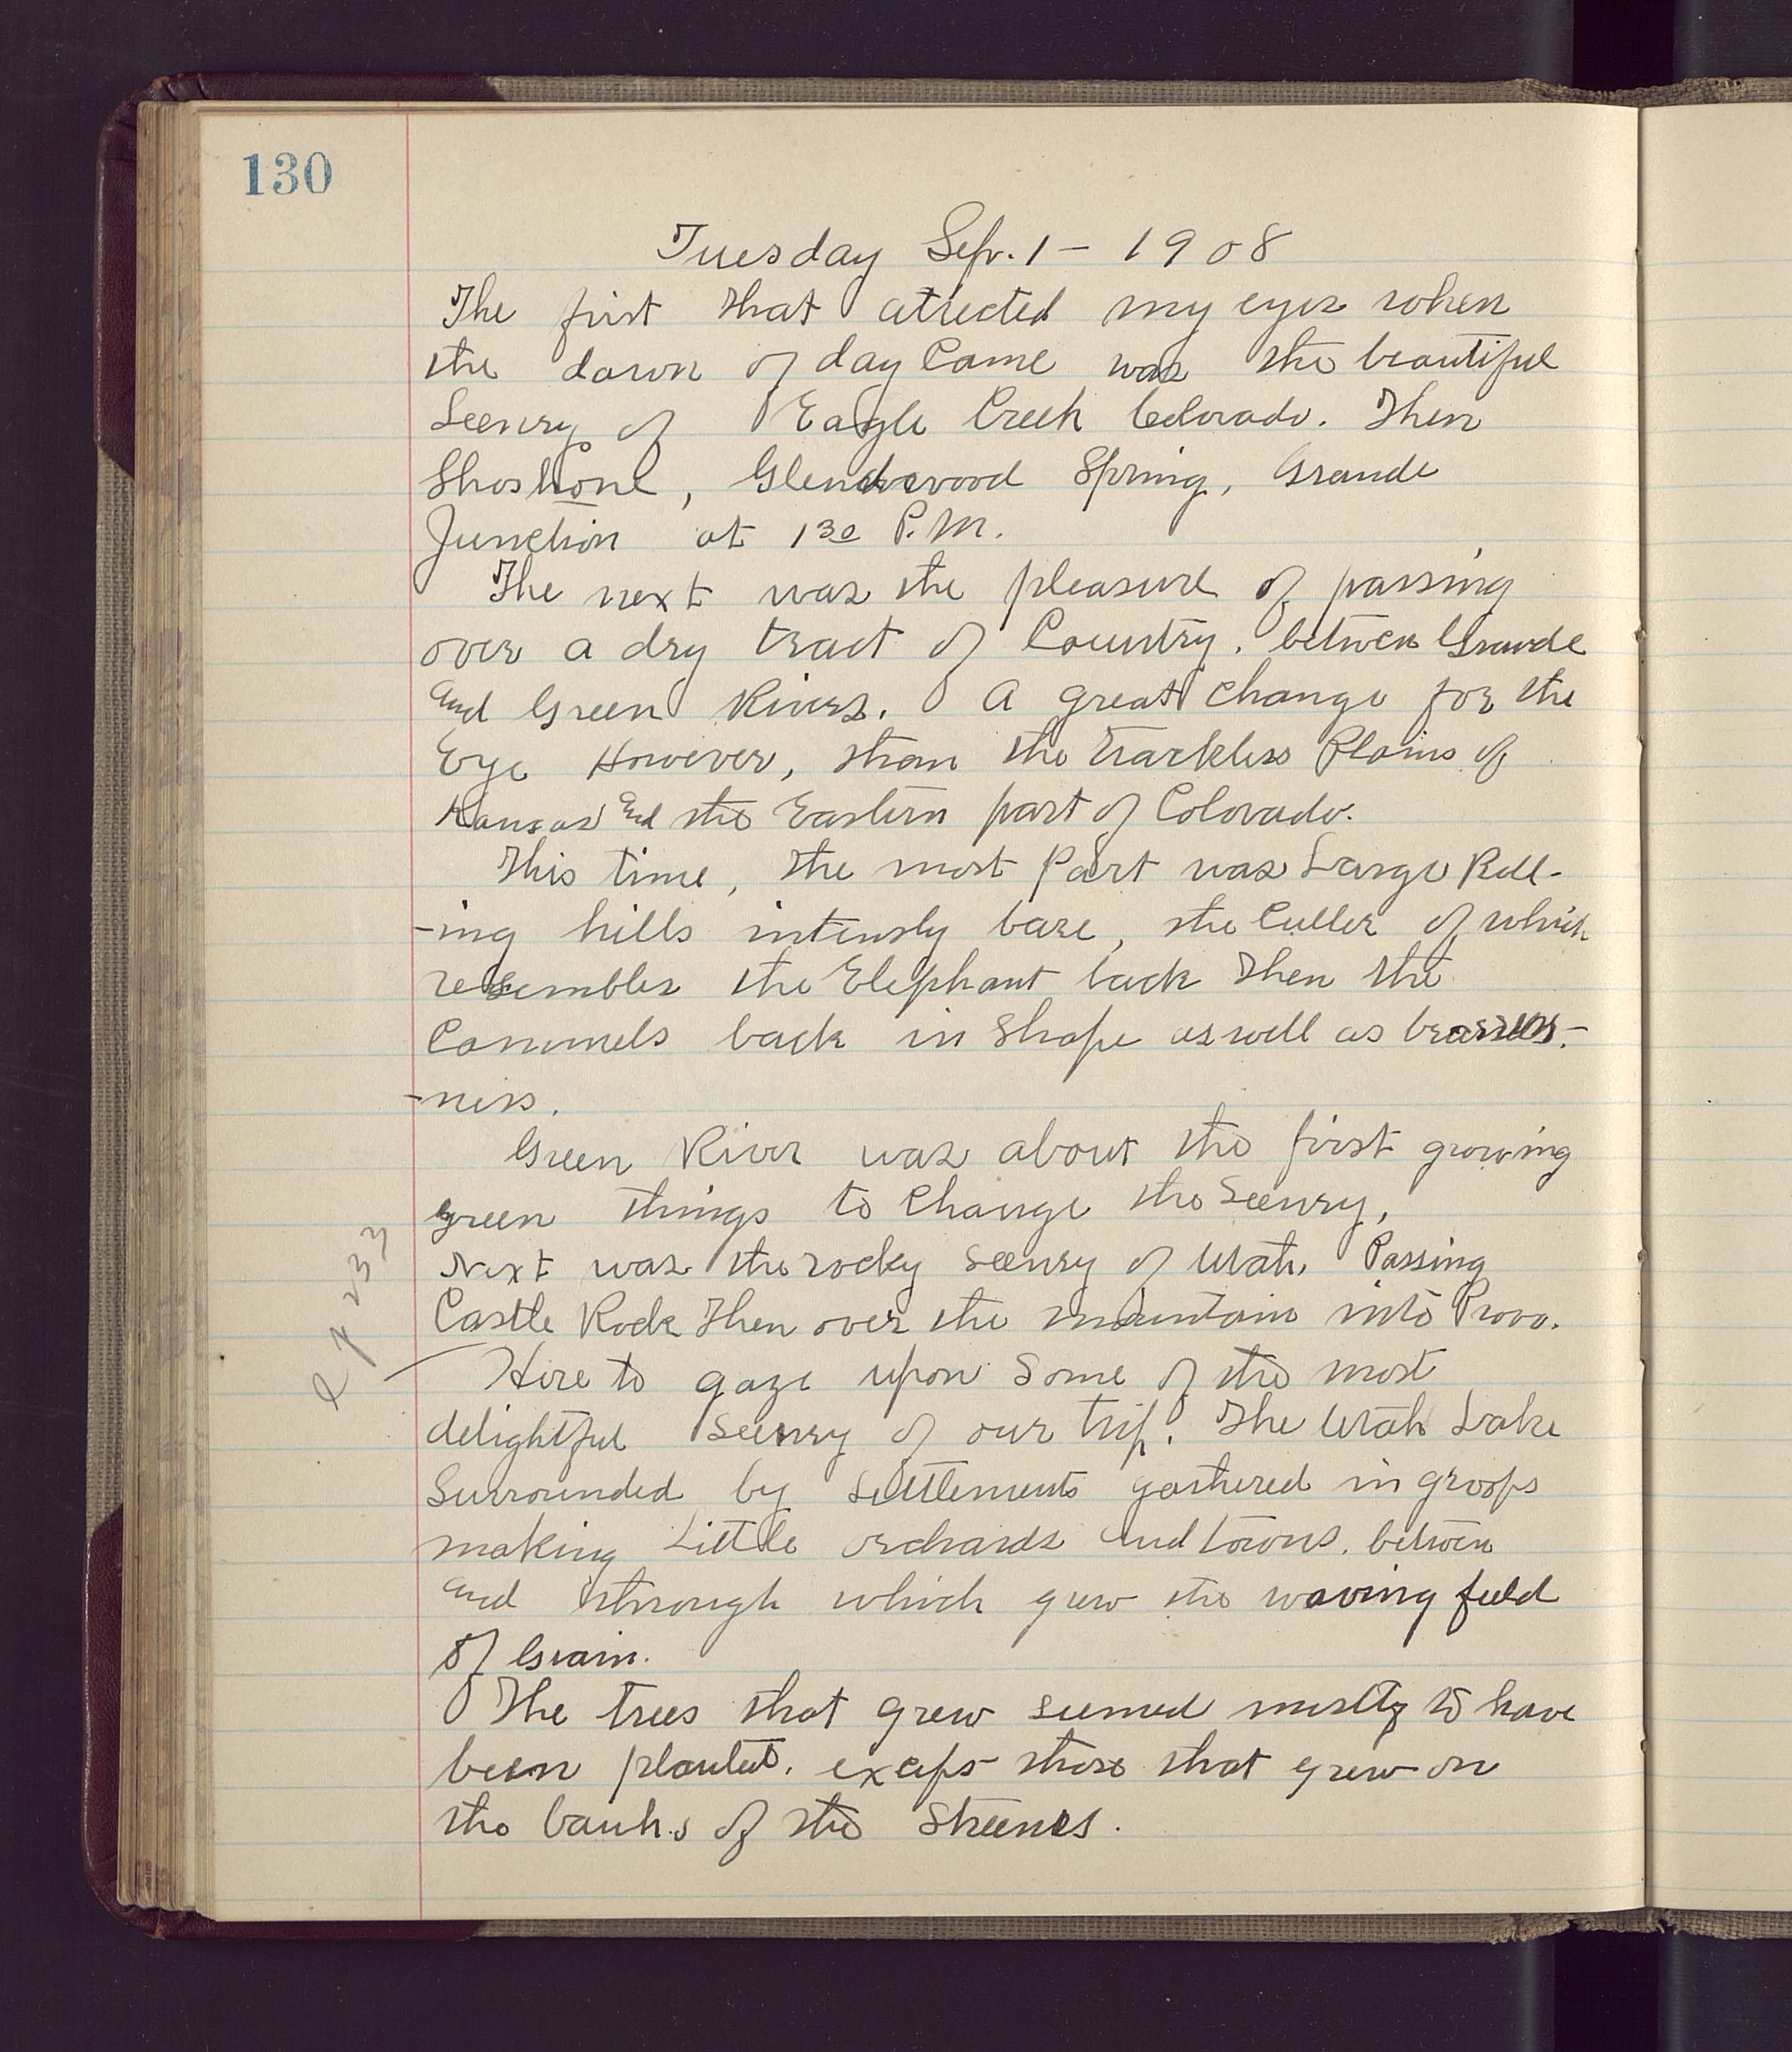 130
Tuesday Sep. 1 - 1908
The first that attrected my eyes when
the dawn of day Came was the beautiful
Seenry of Eagle Creek Colorado. Then
Shoshone, Glendwood Spring, Grande
Junction at 1 30 P.M.
The next was the pleasure of passing
over a dry tract of Country. betwen Grande
and Green Rivers. A great change for the
Eye However, than the trackless Plains of
Kansas and the Eastern part of Colorado.
This time, the most Part was Large Roll-
-ing hills intensly bare, the Culler of which
resembles the Elephant back Then the
Cammels back in Shape as well as
-ness.
Green River was about the first growing
green things to Change the Seenry,
Next was the rocky Seenry of Utah, Passing
Castle Rock Then over the mountain into Provo.
Here to gaze upon Some of the most
delightful Seenry of our trip. The Utah Lake
Surrounded by settlements gathered in groops
making Little orchards and towns. betwen
and through which grew the waving field
of Grain.
The trees that grew seemed mostly to have
been planted. except those that grew on
the banks of the Streems.
233